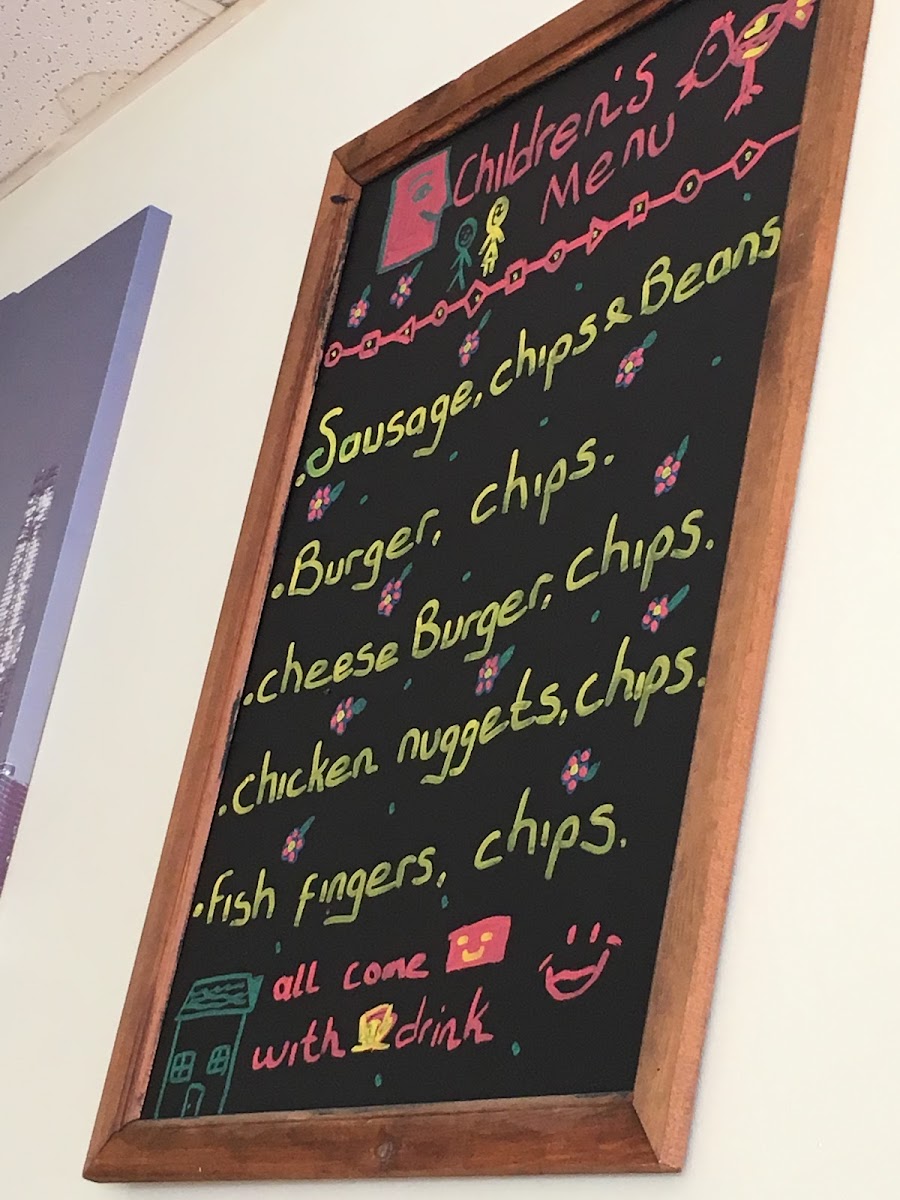 Children's
Menu
.Sausage, chips & Beans
.Burger, chips.
.cheese Burger, chips.
.chicken nuggets, chips.
.fish fingers, chips.
all come
with drink